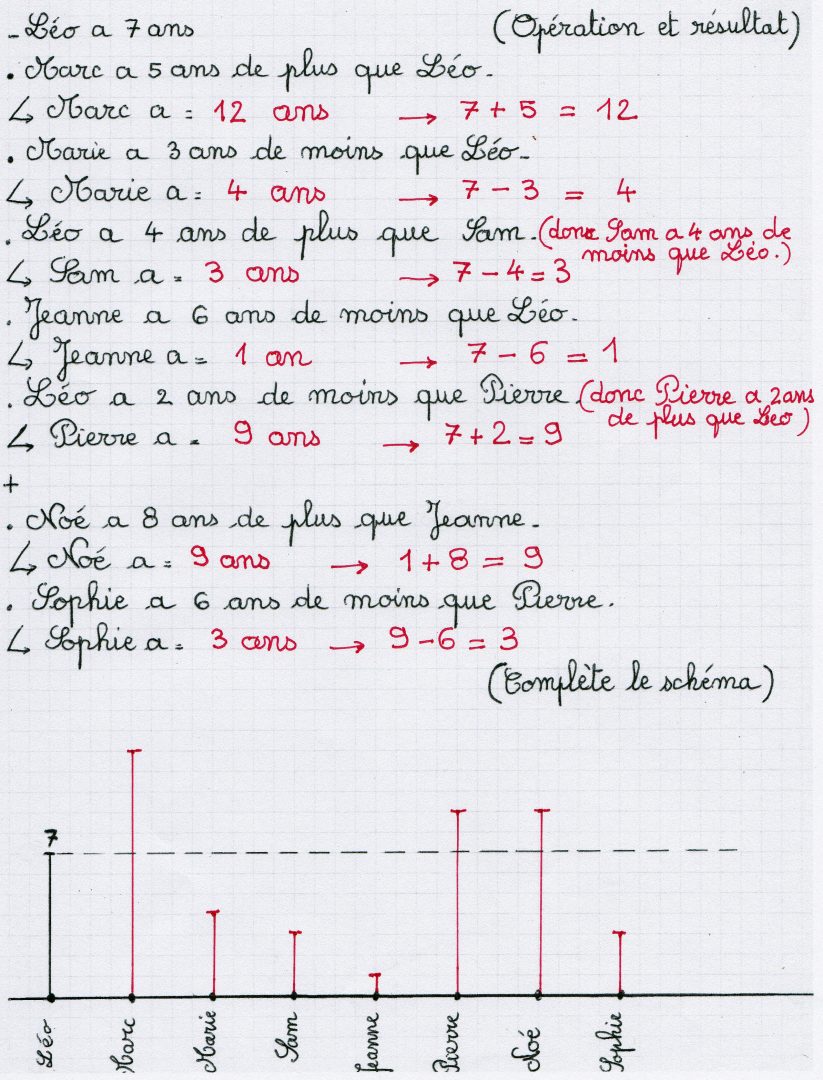 - Léo a 7 ans (Opération et résultat)
. Marc a 5 ans de plus que Léo.
↳ Marc a = 12 ans → 7 + 5 = 12
. Marie a 3 ans de moins que Léo.
↳ Marie a = 4 ans → 7 - 3 = 4
. Léo a 4 ans de plus que Sam. (donc Sam a 4 ans de
moins que Léo.)
↳ Sam a = 3 ans → 7 - 4 = 3
. Jeanne a 6 ans de moins que Léo.
↳ Jeanne a = 1 an → 7 - 6 = 1
. Léo a 2 ans de moins que Pierre (donc Pierre a 2 ans
de plus que Leo)
↳ Pierre a = 9 ans → 7 + 2 = 9
+
. Noé a 8 ans de plus que Jeanne.
↳ Noé a = 9 ans → 1 + 8 = 9
. Sophie a 6 ans de moins que Pierre.
↳ Sophie a = 3 ans → 9 - 6 = 3
(Complète le schéma)
7
Léo
Marc
Marie
Sam
Jeanne
Pierre
Noé
Sophie